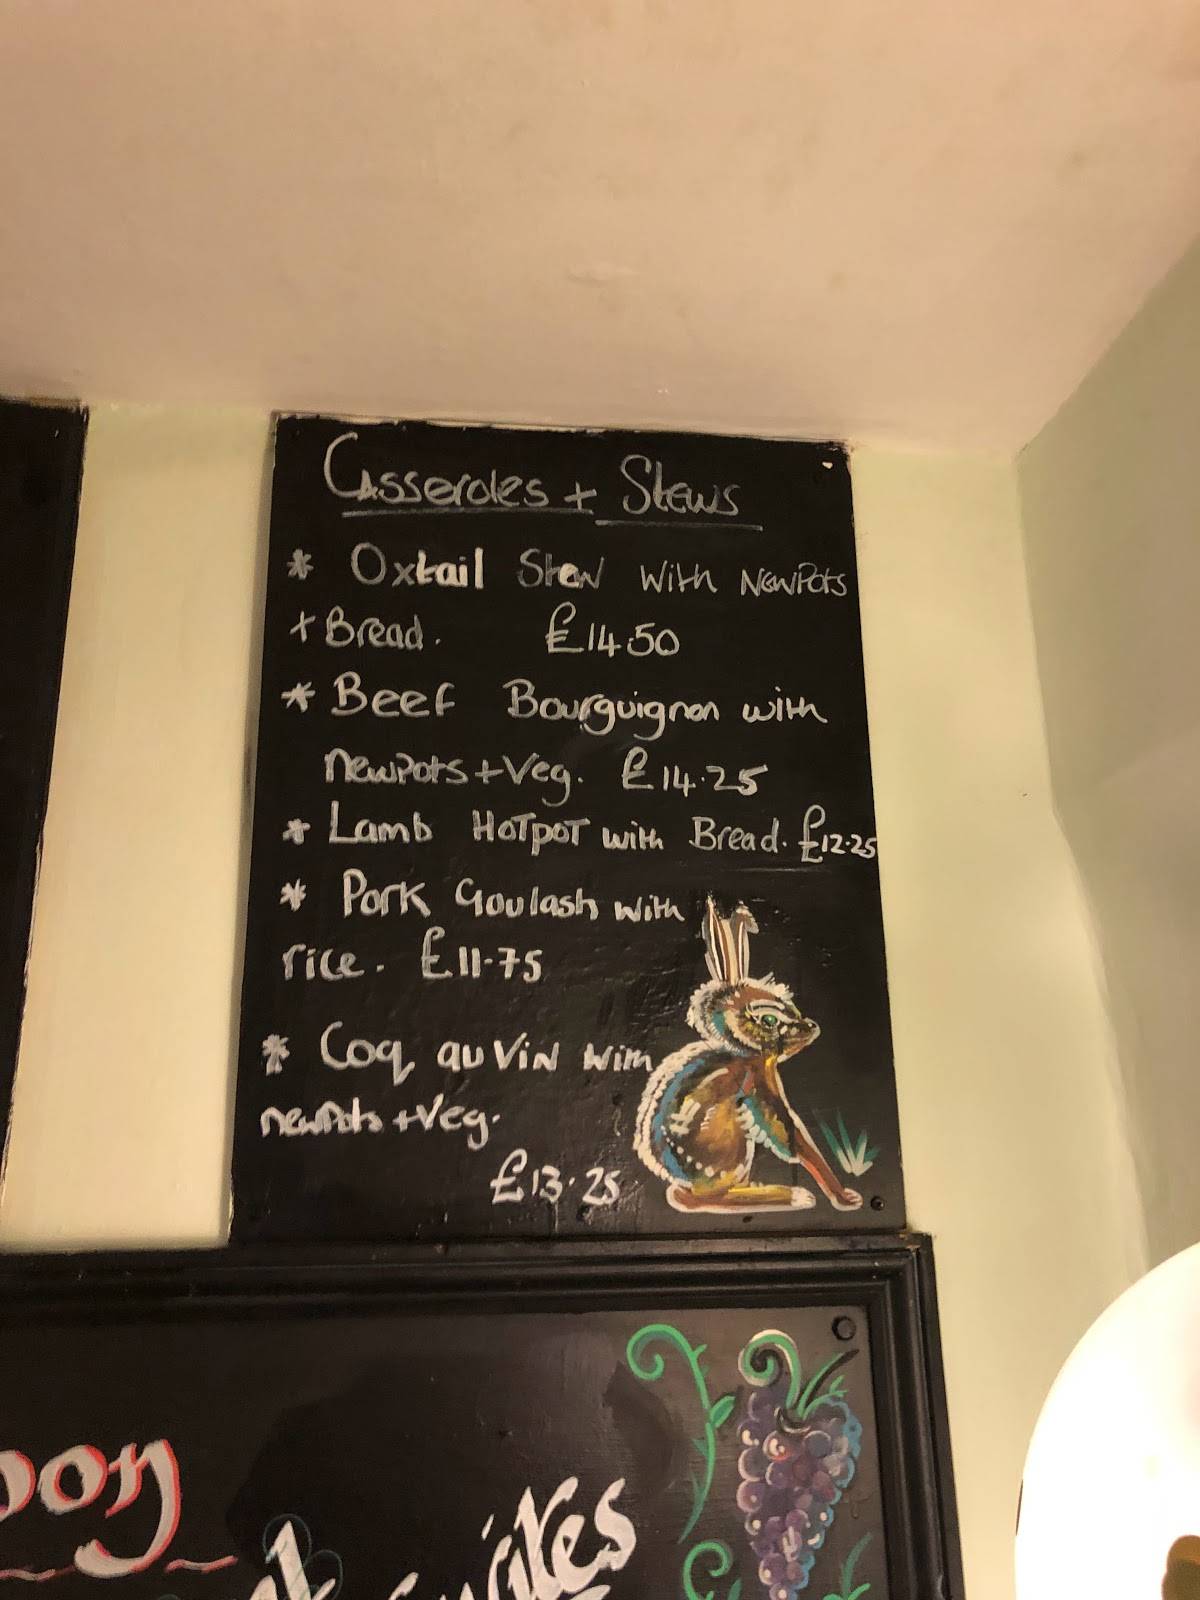 Casseroles + Stews
* Oxtail Stew with NewPots
+ Bread. £14.50
* Beef Bourguignon with
newPots + Veg. £14.25
* Lamb HOTPOT with Bread. £12.25
* Pork Goulash with
rice. £11.75
* Coq au ViN with
newPots + Veg.
£13.25